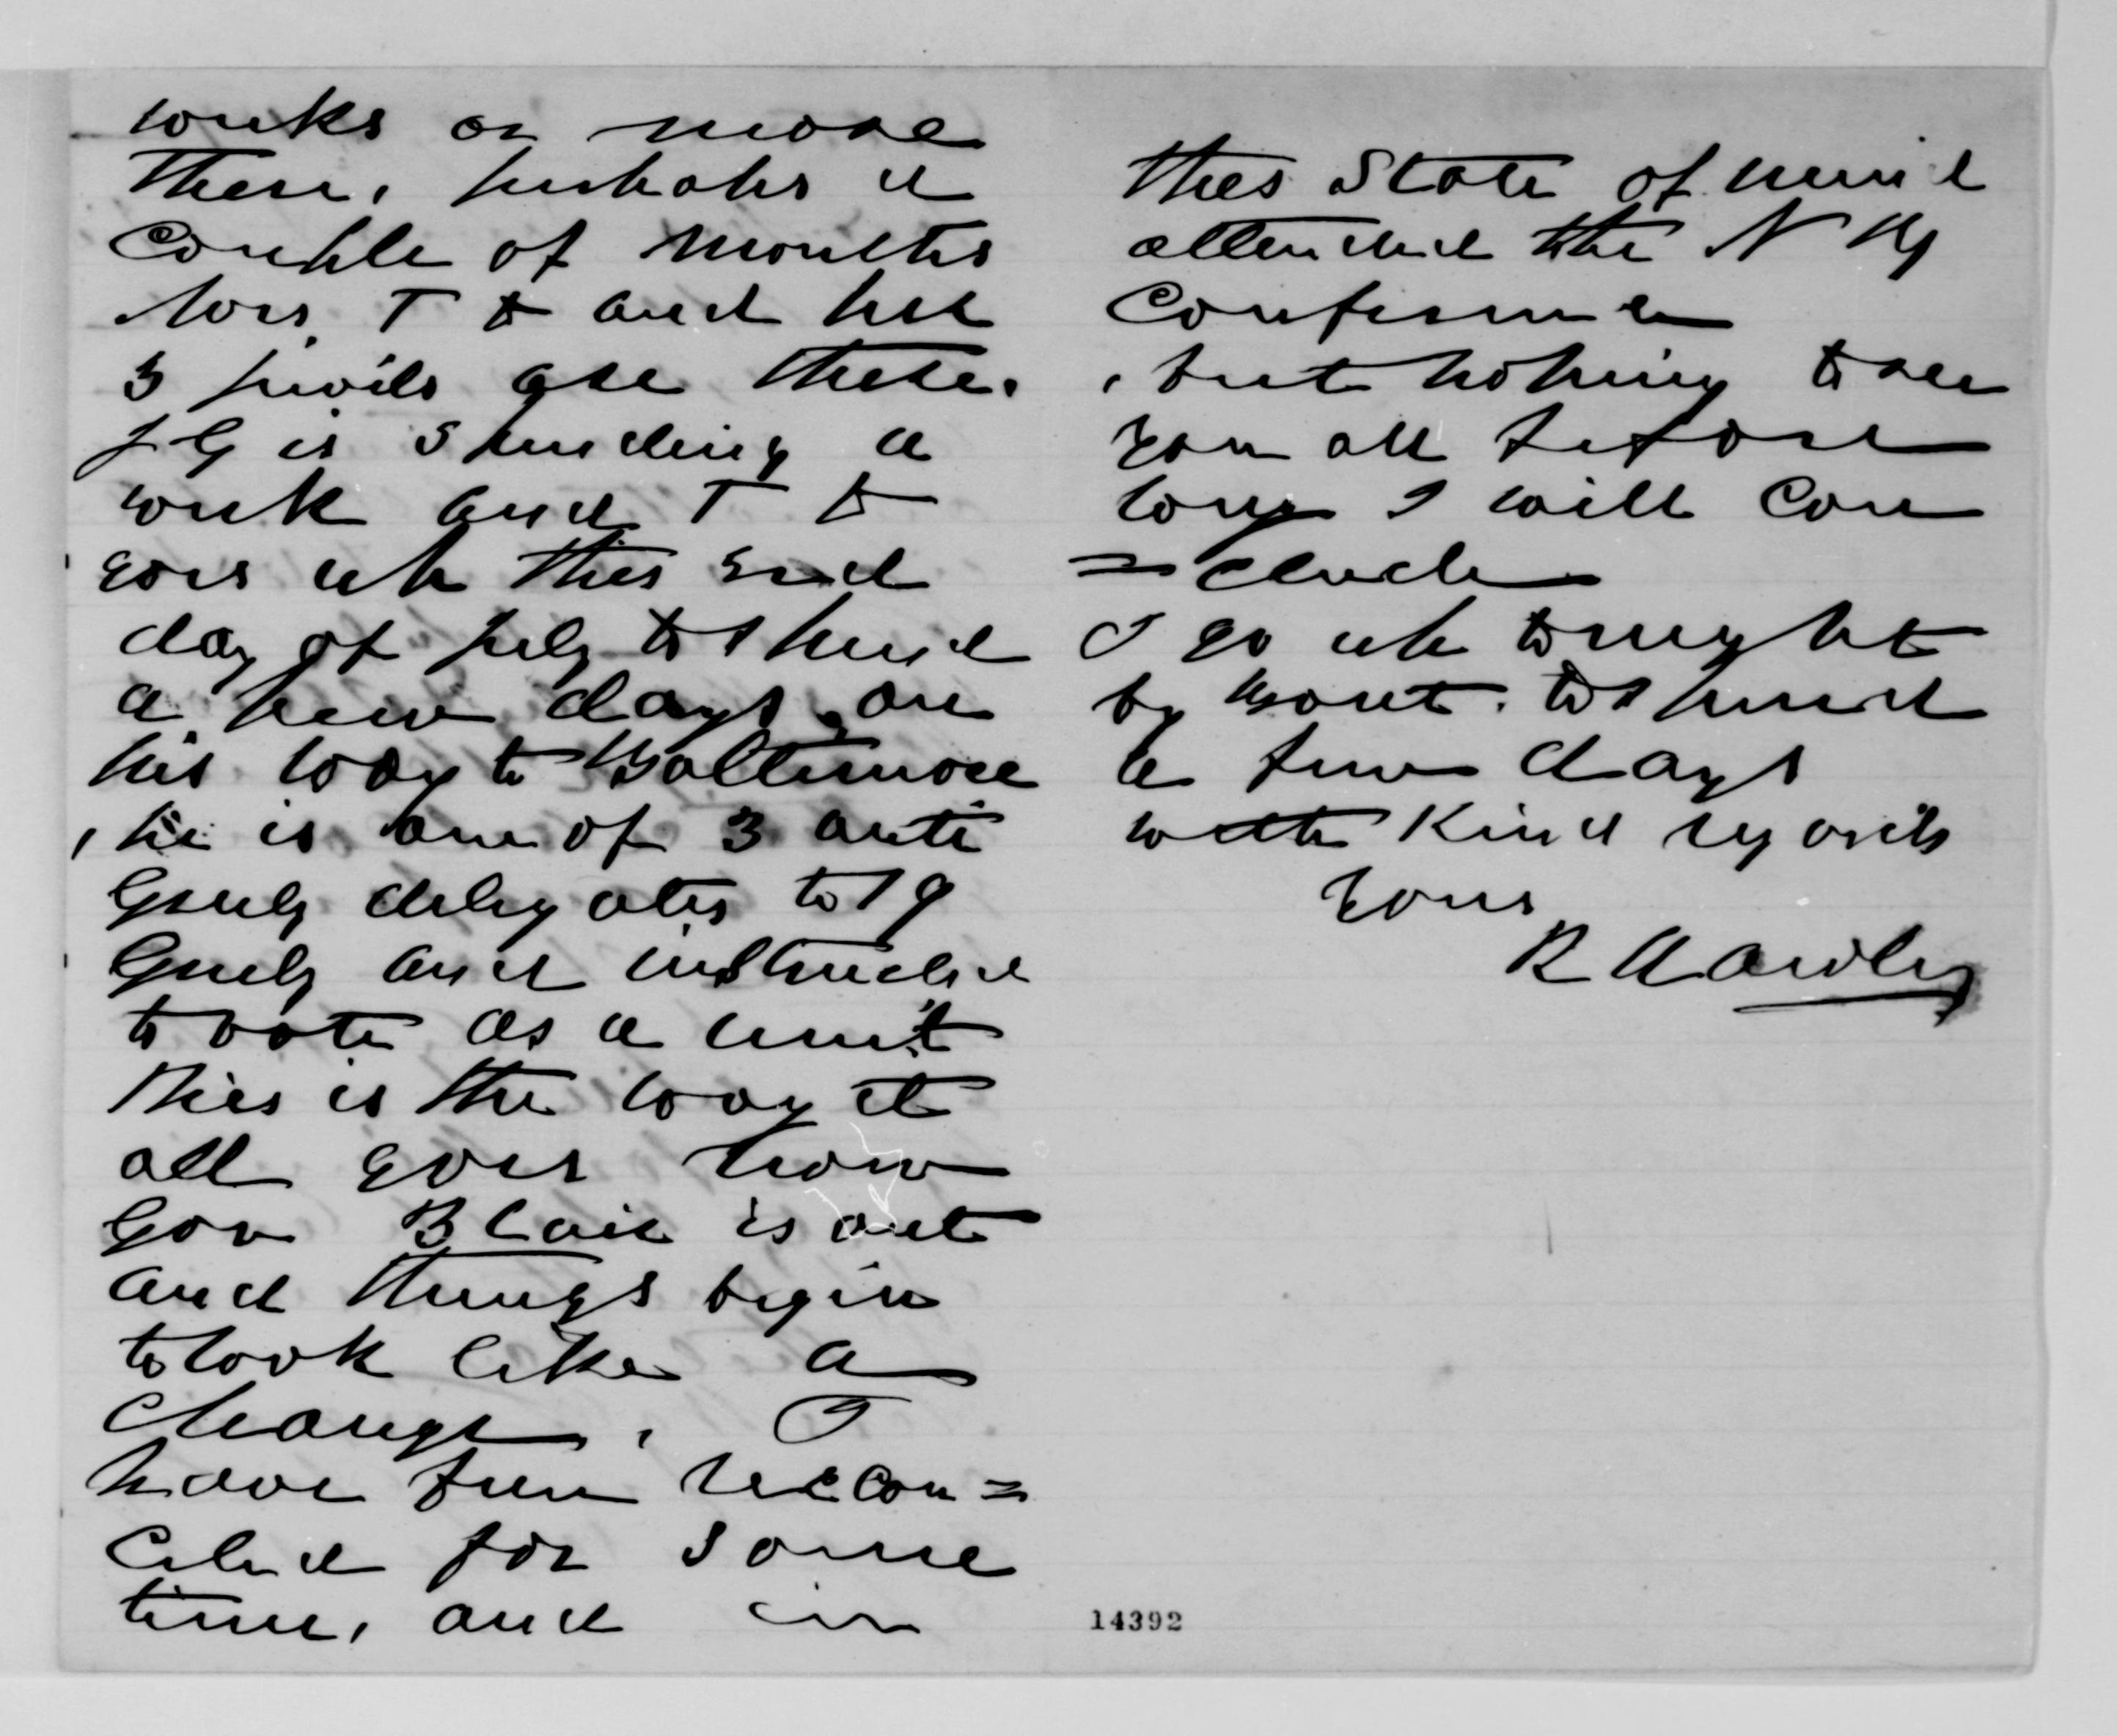 weeks or more
there, perhaps a
Couple of months
Mrs. T t and her
3 girls are there.
J G is spending a
week and T t
goes up this 2nd
day of July to spend
a few days on
his way to Baltimore
, he is one of 3 anti
Grely delegates to 19
Grely and instructed
to vote as a unit
this is the way it
all goes now
Gov Blair is out
and things begin
to look like a
Change, I
have been recon=
ciled for some
time, and in
this State of mind
attended the N Y
Conference
, but hoping to see
you all before
long I will Con
=clude
I go up tonight
by boat. to spend
a few days
with Kind regards
Yours
R Hawley
14392